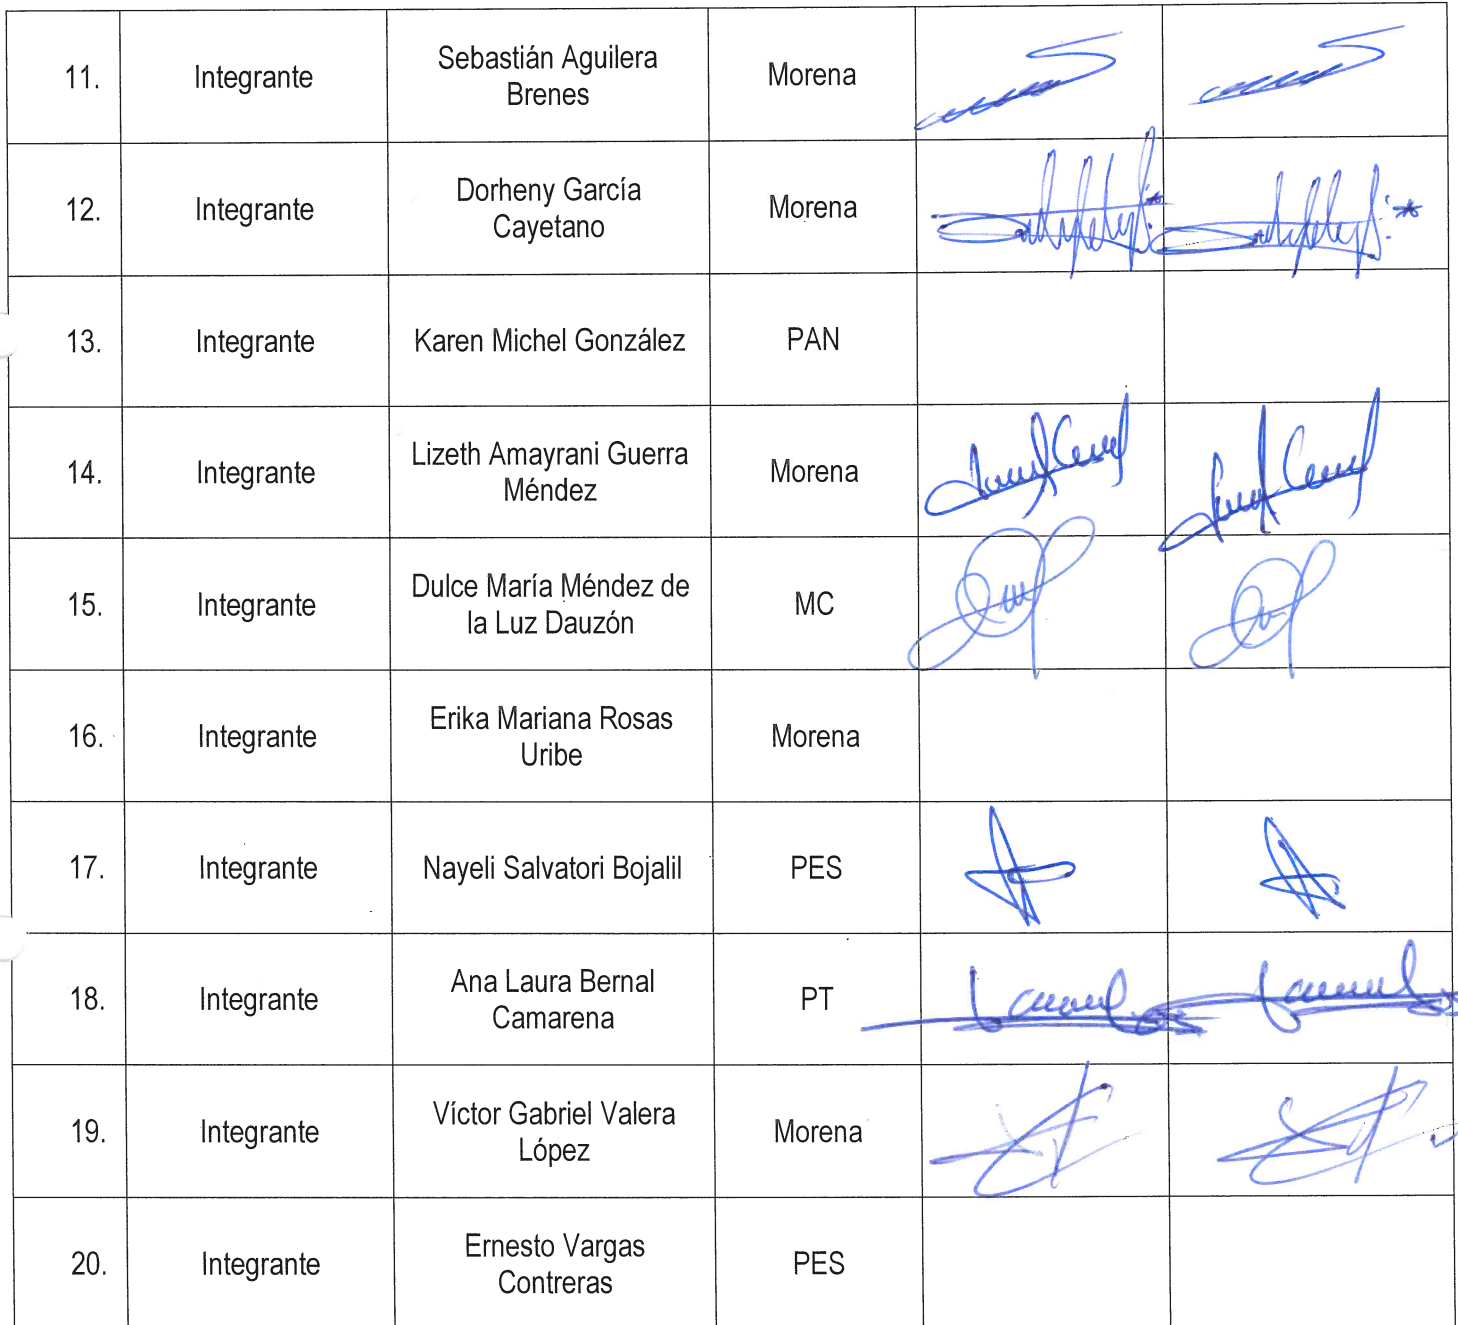 11. Integrante Sebastián Aguilera Morena
Brenes
12. Integrante Dorheny García Morena
Cayetano
13. Integrante Karen Michel González PAN
14. Integrante Lizeth Amayrani Guerra Morena
Méndez
15. Integrante Dulce María Méndez de MC
la Luz Dauzón
16. Integrante Erika Mariana Rosas Morena
Uribe
17. Integrante Nayeli Salvatori Bojalil PES
18. Integrante Ana Laura Bernal PT
Camarena
19. Integrante Víctor Gabriel Valera Morena
López
20. Integrante Ernesto Vargas PES
Contreras